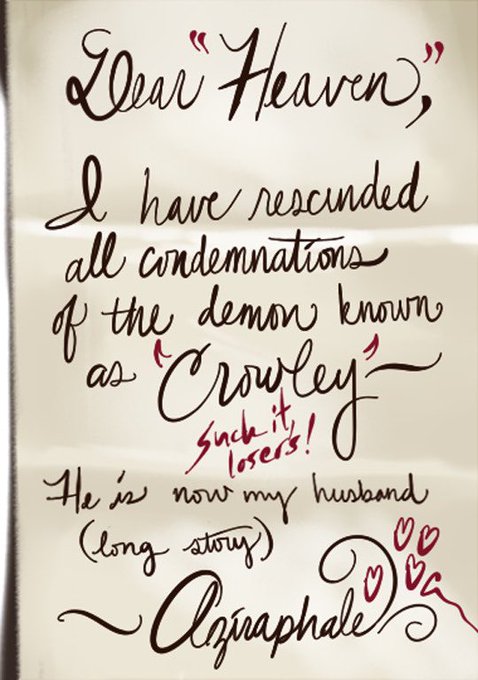 Dear "Heaven",
I have rescinded
all condemnations
of the demon known
as 'Crowley' ~
Suck it,
losers!
He is now my husband
(long story)
~ Aziraphale